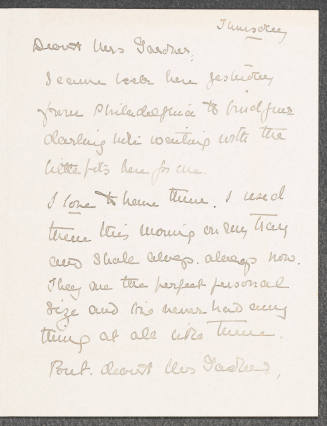 Thursday
Dearest Mrs Gardner,
I came back here yesterday
from Philadelphia to find your
darling note waiting with the
little
here for me.
I love to have them. I used
them this morning on my tray
and I shall always. always now.
They are the perfect personal
size and I've never had any
thing at all like them.
But. dearest Mrs Gardner,